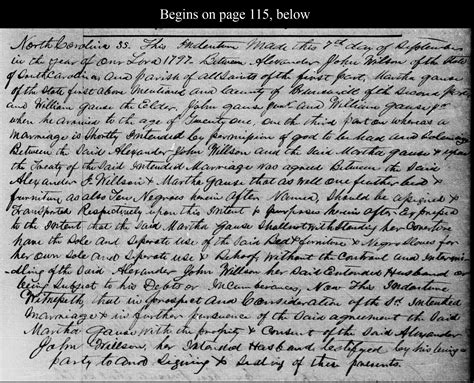 Begins on page 115, below
North Carolina SS. This Indenture Made this 7th day of September
in the year of our Lord 1797. Between Alexander John Wilson of the State
of South Carolina and Parish of all Saints of the first part, Martha Gause
of the State first above Mentioned and County of Brunswick of the Second part
and William Gause the Elder, John Gause Junr and William Gause Jr
when he arrives to the age of Twenty one, on the third part on whereas a
Marriage is Shortly Intended by permission of god to be had and Solemnized
Between the Said Alexander John Willson and the Said Martha Gause & upon
the Treaty of the Said Intended Marriage was agreed Between the Said
Alexander J. Willson & Martha Gause that as well one feather bed &
furniture as also Negroes herein After Named, Should be assigned &
Transported Respectively upon the Intent & purposes herein After Expressed
to the Intent that the Said Martha Gause Shall notwithstanding her Coverture
have the Sole and Seperate use of the Said Bed & furniture & Negro Slaves for
her own Sole and Seperate use & Behoof Without the Controul and Intermed
dling of the Said Alexander John Willson her Said Entended Husband or
being Subject to his Debts or Incumberances, Now This Indenture
Witnesseth that in prospect and Consideration of the Sd. Intended
Marriage & in further pursuance of the Said agreement the Said
Martha Gause with the & Consent of the Said Alexander
John Willson, her Intended Husband testified by his being a
party to and Signing & Sealing of these presents.